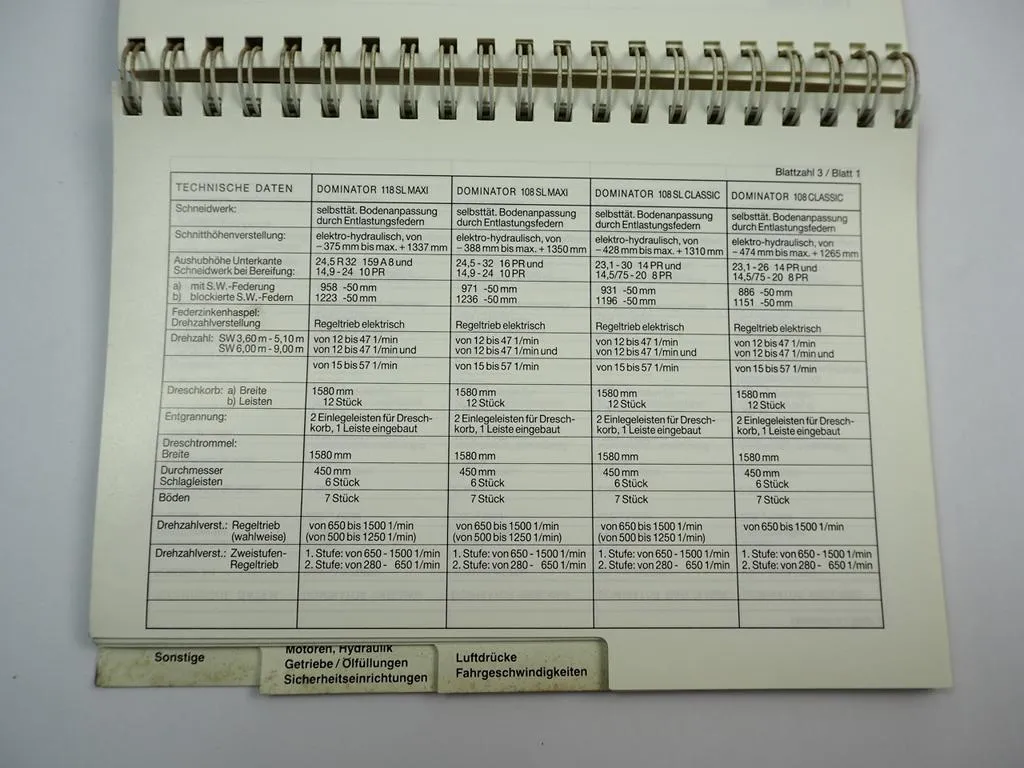 Blattzahl 3 / Blatt 1
TECHNISCHE DATEN DOMINATOR 118 SL MAXI DOMINATOR 108 SL MAXI DOMINATOR 108 SL CLASSIC DOMINATOR 108 CLASSIC
Schneidwerk: selbsttät. Bodenanpassung selbsttät. Bodenanpassung selbsttät. Bodenanpassung selbsttät. Bodenanpassung
durch Entlastungsfedern durch Entlastungsfedern durch Entlastungsfedern durch Entlastungsfedern
Schnitthöhenverstellung: elektro-hydraulisch, von elektro-hydraulisch, von elektro-hydraulisch, von elektro-hydraulisch, von
– 375 mm bis max. + 1337 mm – 388 mm bis max. + 1350 mm – 428 mm bis max. + 1310 mm – 474 mm bis max. + 1265 mm
Aushubhöhe Unterkante 24,5 R 32 159 A 8 und 24,5 - 32 16 PR und 23,1 - 30 14 PR und 23,1 - 26 14 PR und
Schneidwerk bei Bereifung: 14,9 - 24 10 PR 14,9 - 24 10 PR 14,5/75 - 20 8 PR 14,5/75 - 20 8 PR
a) mit S.W.-Federung 958 -50 mm 971 -50 mm 931 -50 mm 886 -50 mm
b) blockierte S.W.-Federn 1223 -50 mm 1236 -50 mm 1196 -50 mm 1151 -50 mm
Federzinkenhaspel:
Drehzahlverstellung Regeltrieb elektrisch Regeltrieb elektrisch Regeltrieb elektrisch Regeltrieb elektrisch
Drehzahl: SW 3,60 m - 5,10 m von 12 bis 47 1/min von 12 bis 47 1/min von 12 bis 47 1/min von 12 bis 47 1/min
SW 6,00 m - 9,00 m von 12 bis 47 1/min und von 12 bis 47 1/min und von 12 bis 47 1/min und von 12 bis 47 1/min und
von 15 bis 57 1/min von 15 bis 57 1/min von 15 bis 57 1/min von 15 bis 57 1/min
Dreschkorb: a) Breite 1580 mm 1580 mm 1580 mm 1580 mm
b) Leisten 12 Stück 12 Stück 12 Stück 12 Stück
Entgrannung: 2 Einlegeleisten für Dresch- 2 Einlegeleisten für Dresch- 2 Einlegeleisten für Dresch- 2 Einlegeleisten für Dresch-
korb, 1 Leiste eingebaut korb, 1 Leiste eingebaut korb, 1 Leiste eingebaut korb, 1 Leiste eingebaut
Dreschtrommel:
Breite 1580 mm 1580 mm 1580 mm 1580 mm
Durchmesser 450 mm 450 mm 450 mm 450 mm
Schlagleisten 6 Stück 6 Stück 6 Stück 6 Stück
Böden 7 Stück 7 Stück 7 Stück 7 Stück
Drehzahlverst.: Regeltrieb von 650 bis 1500 1/min von 650 bis 1500 1/min von 650 bis 1500 1/min von 650 bis 1500 1/min
(wahlweise) (von 500 bis 1250 1/min) (von 500 bis 1250 1/min) (von 500 bis 1250 1/min)
Drehzahlverst.: Zweistufen- 1. Stufe: von 650 - 1500 1/min 1. Stufe: von 650 - 1500 1/min 1. Stufe: von 650 - 1500 1/min 1. Stufe: von 650 - 1500 1/min
Regeltrieb 2. Stufe: von 280 - 650 1/min 2. Stufe: von 280 - 650 1/min 2. Stufe: von 280 - 650 1/min 2. Stufe: von 280 - 650 1/min
Sonstige
Motoren, Hydraulik
Getriebe / Ölfüllungen
Sicherheitseinrichtungen
Luftdrücke
Fahrgeschwindigkeiten